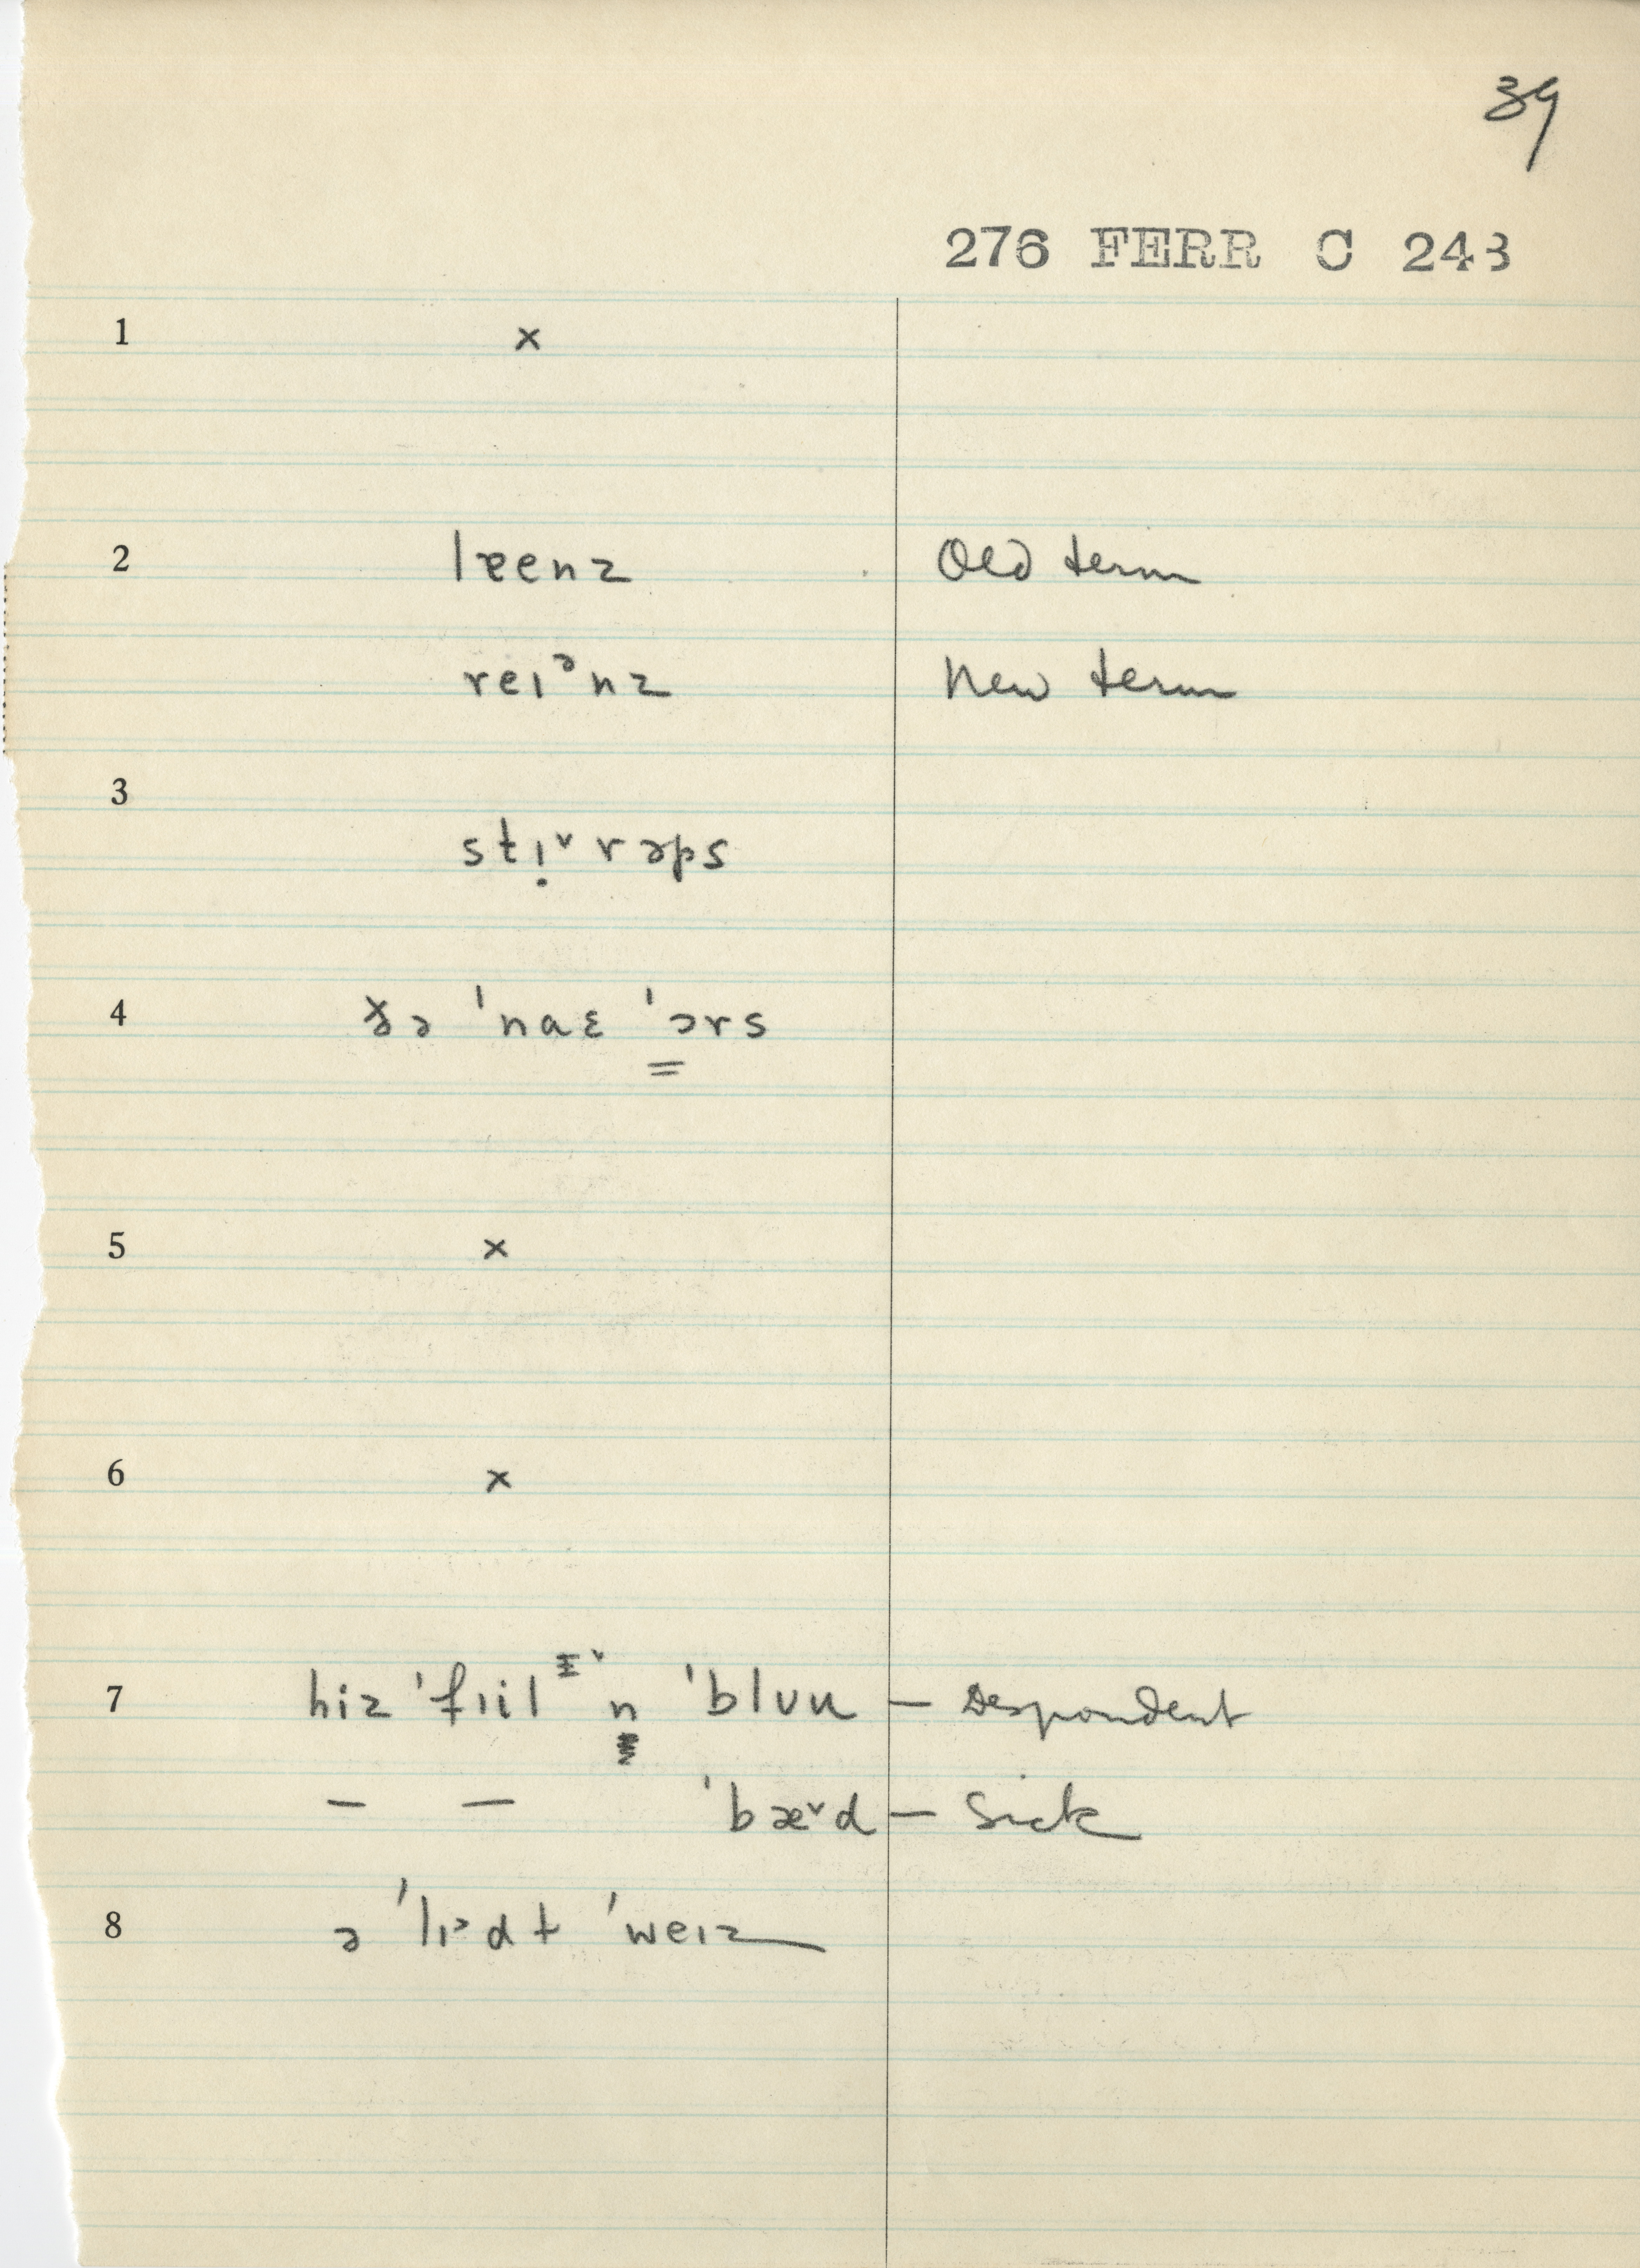 39
276 FERR C 243
1 x
2 lɛenz Old term
reɪᵊnz New term
3
stɪ̣ˇrəps
4 ðə ˈnaɛ ˈɔrs
5 x
6 x
7 hiz ˈfɪil n ˈblʊu — Despondent
— — ˈbæˇd — Sick
8 ə ˈlɪᵊdt ˈweɪz